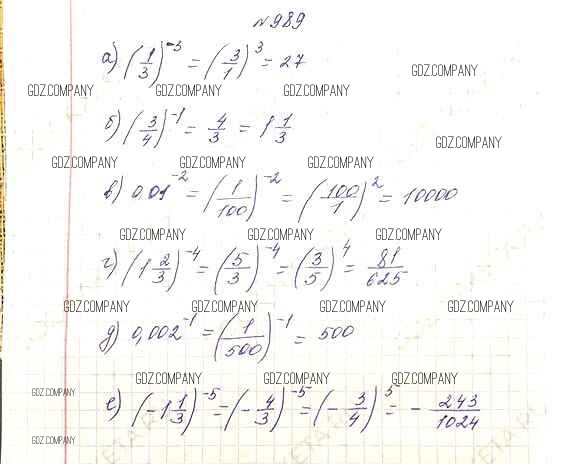 №989
а) (1/3)^-3 = (3/1)^3 = 27
GDZ.COMPANY
GDZ.COMPANY GDZ.COMPANY GDZ.COMPANY
б) (3/4)^-1 = 4/3 = 1 1/3
GDZ.COMPANY
GDZ.COMPANY GDZ.COMPANY GDZ.COMPANY
в) 0,01^-2 = (1/100)^-2 = (100/1)^2 = 10000
GDZ.COMPANY GDZ.COMPANY GDZ.COMPANY
г) (1 2/3)^-4 = (5/3)^-4 = (3/5)^4 = 81/625
GDZ.COMPANY GDZ.COMPANY GDZ.COMPANY GDZ.COMPANY
д) 0,002^-1 = (1/500)^-1 = 500
GDZ.COMPANY GDZ.COMPANY GDZ.COMPANY
GDZ.COMPANY
е) (-1 1/3)^-5 = (-4/3)^-5 = (-3/4)^5 = -243/1024
GDZ.COMPANY